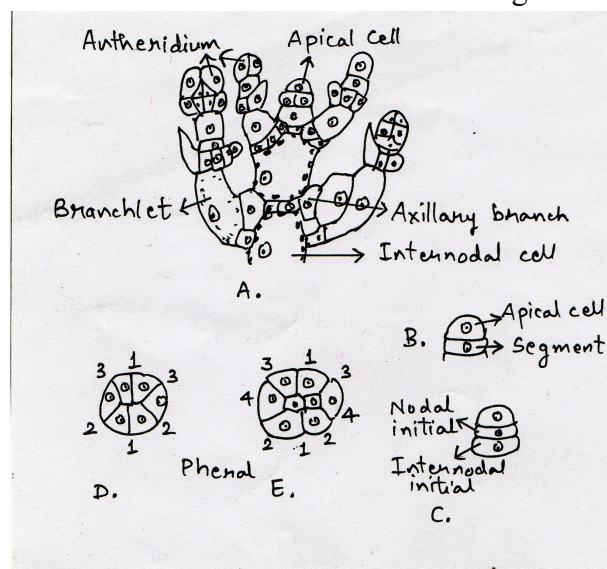 Antheridium
Apical Cell
Branchlet
Axillary branch
Internodal cell
A.
Apical cell
B.
Segment
3 1 3
2 1 2
D.
3 1 3
4 4
2 1 2
E.
Phenal
Nodal
initial
Internodal
initial
C.